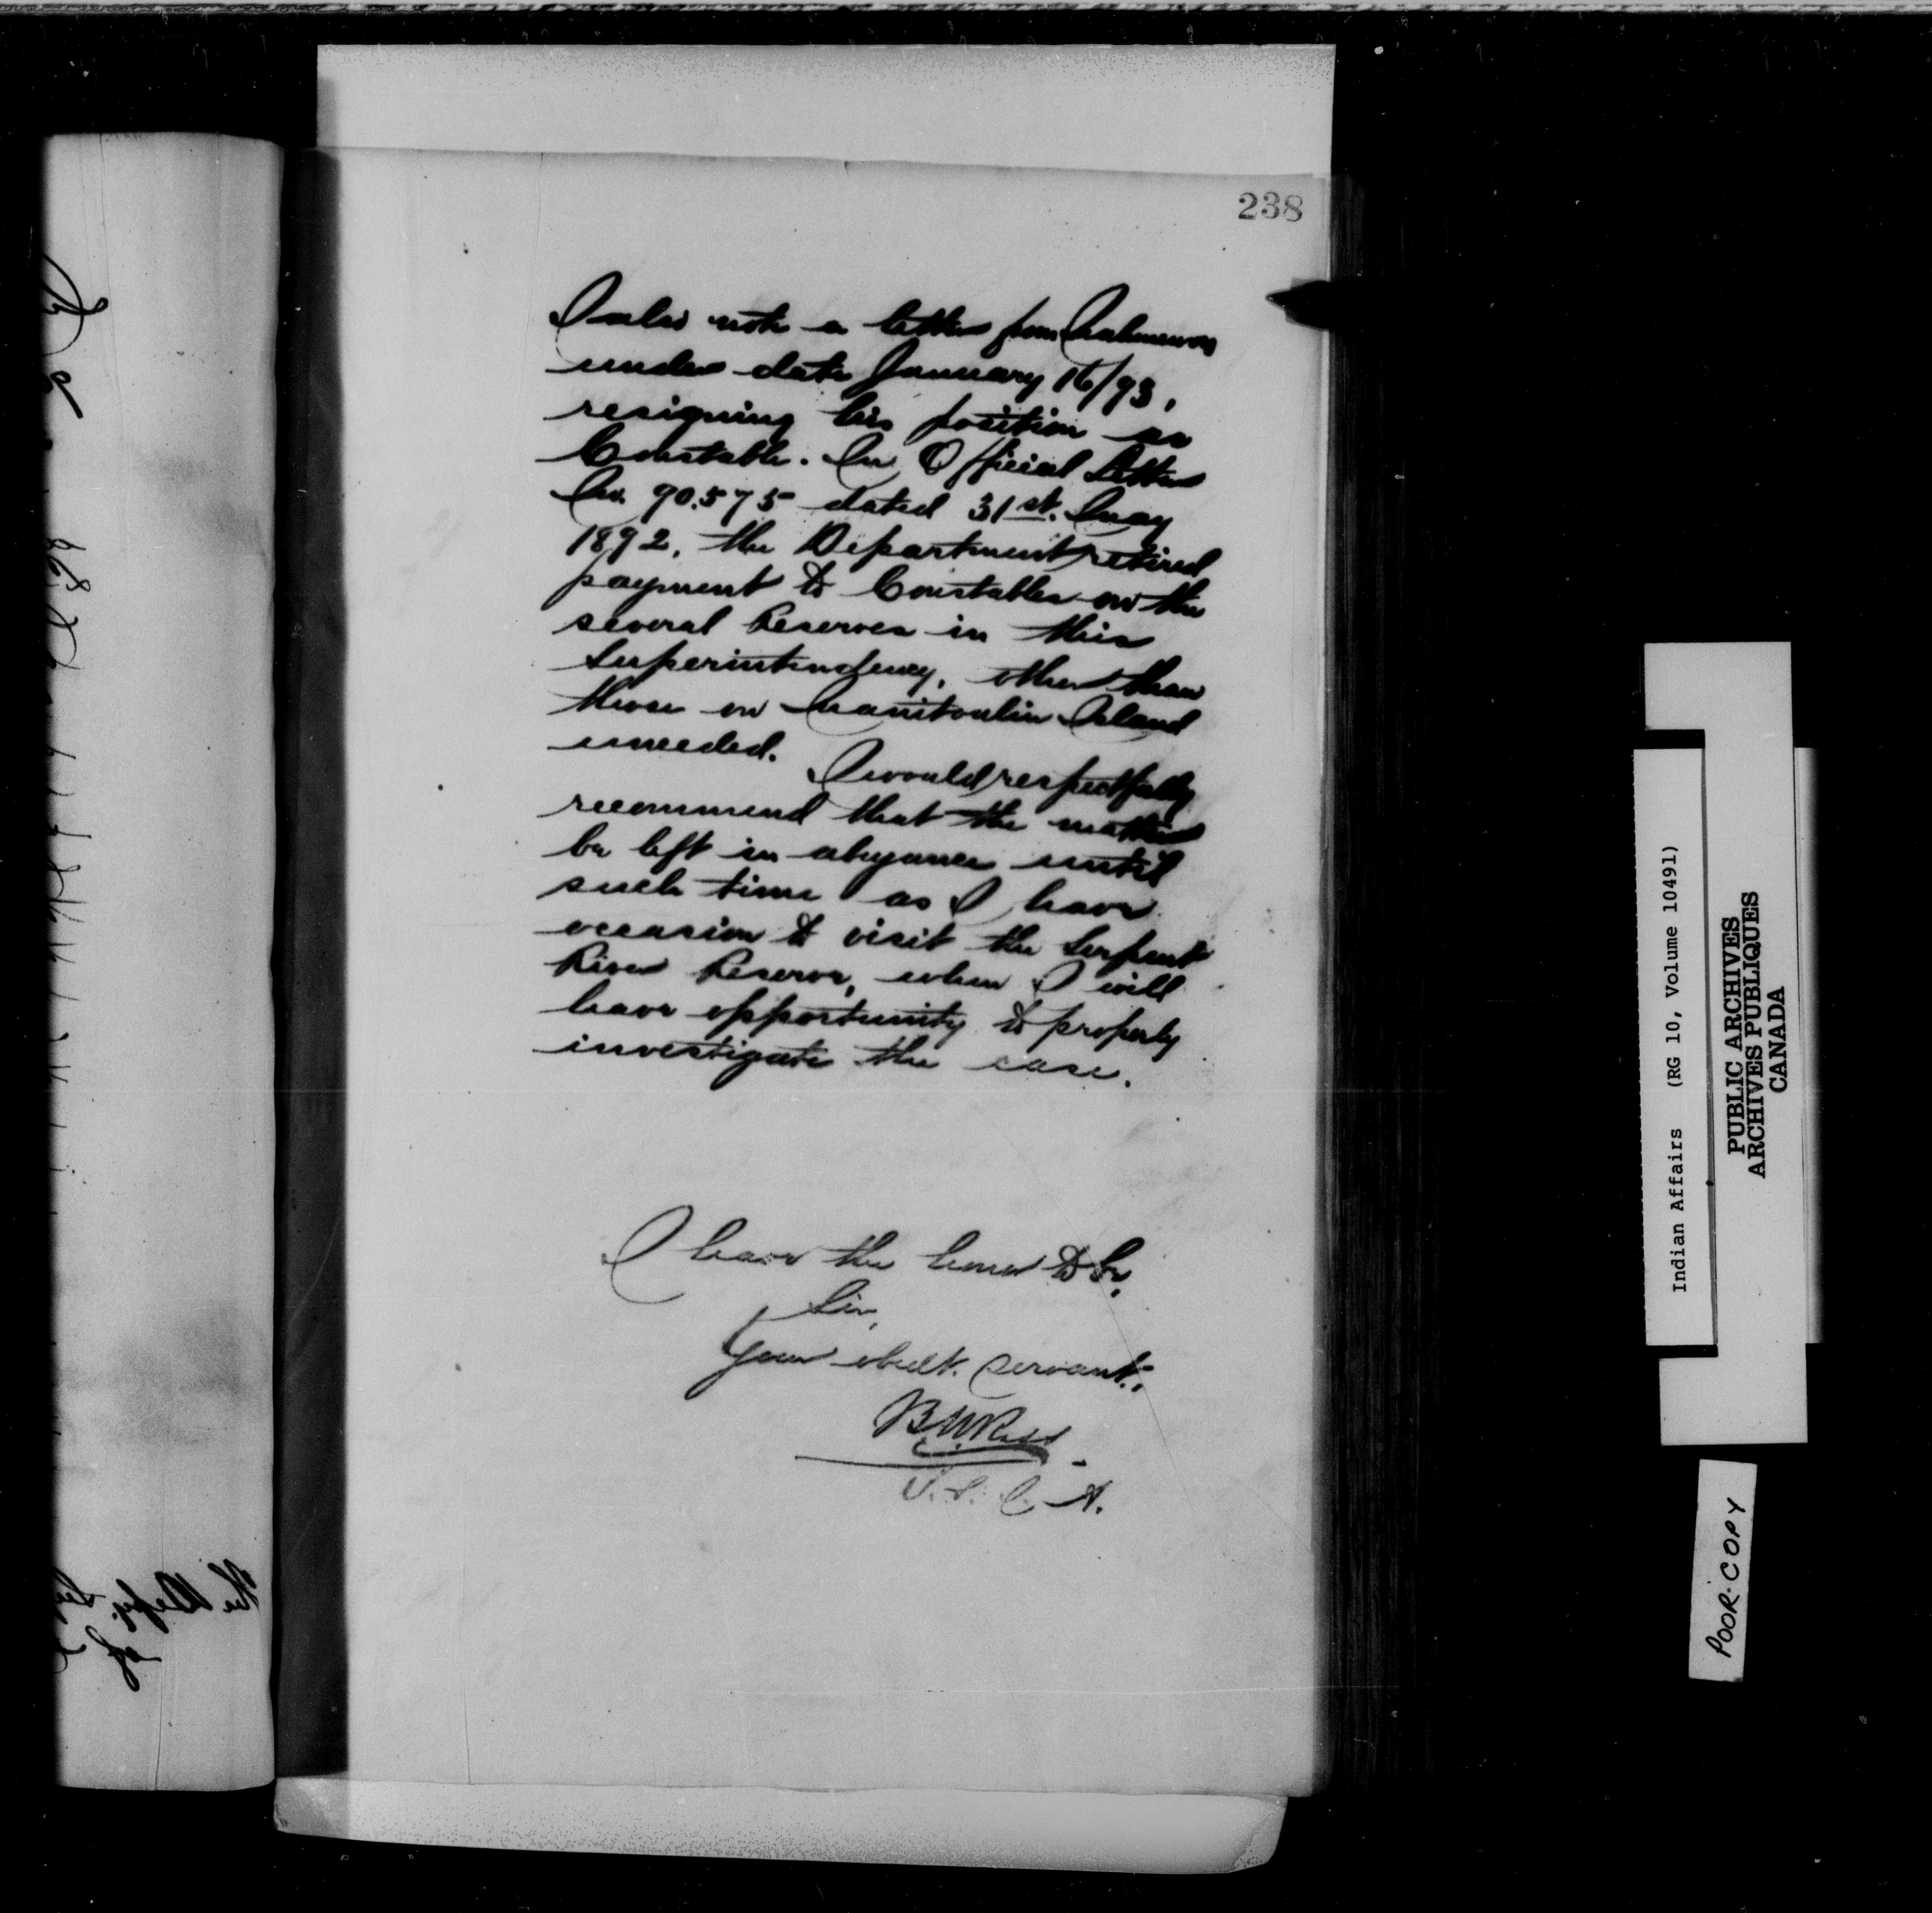 238
I also note a letter from
under date January 16/93,
resigning his position as
Constable. In Official Letter
No. 90.575 dated 31st. May
1892, the Department retired
payment to Constables on the
several Reserves in this
Superintendency, other than
those on Manitoulin Island
unceded. I would respectfully
recommend that the matter
be left in abeyance until
such time as I have
occasion to visit the Serpent
River Reserve, when I will
have opportunity to properly
investigate the case.
I have the honor to be,
Sir,
Your obedt. servant,
B W Ross
I. S. A.
Indian Affairs (RG 10, Volume 10491)
PUBLIC ARCHIVES
ARCHIVES PUBLIQUES
CANADA
POOR COPY
The
Dept.
of